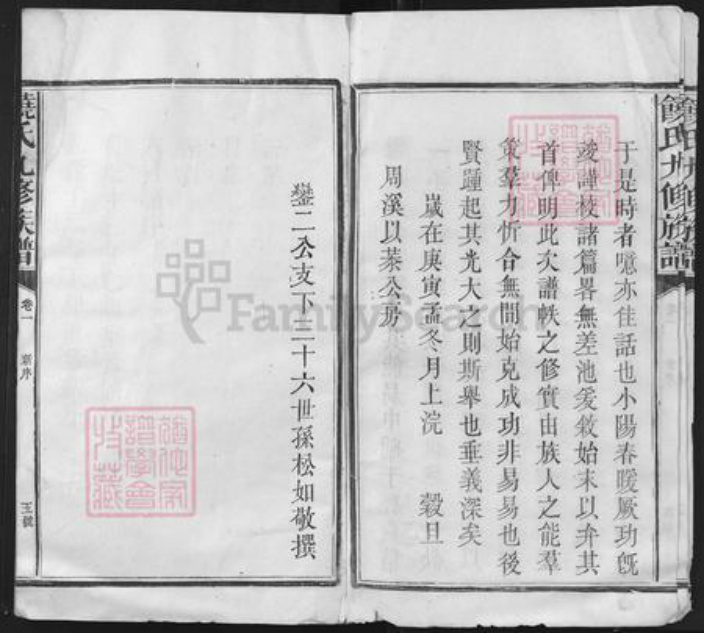 饒氏九修族譜
于是時者噫亦佳話也小陽春暖厥功旣
竣謹校諸篇畧無差池爰敘始末以弁其
首俾明此次譜帙之修實由族人之能羣
策羣力忻合無間始克成功非易易也後
賢踵起其光大之則斯舉也垂義深矣
歲在庚寅孟冬月上浣 穀旦
周溪以棻公房
鑾二公支下三十六世孫松如敬撰
饒氏九修族譜
卷一
新序
王號
FamilySearch